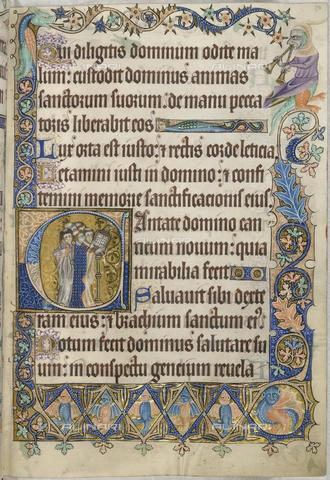 Qui diligitis dominum odite ma
lum: custodit dominus animas
sanctorum suorum: de manu pecca
toris liberabit eos
Lux orta est iusto: & rectis corde leticia
Letamini iusti in domino: & confi
temini memorie sanctificacionis eius
Cantate domino can
ticum novum: quia
mirabilia fecit
Saluauit sibi dexte
ram eius: & brachium sanctum ei9
Notum fecit dominus salutare su
um: in conspectu gencium reuela
ALINARI
ALINARI
ALINARI
ALINARI